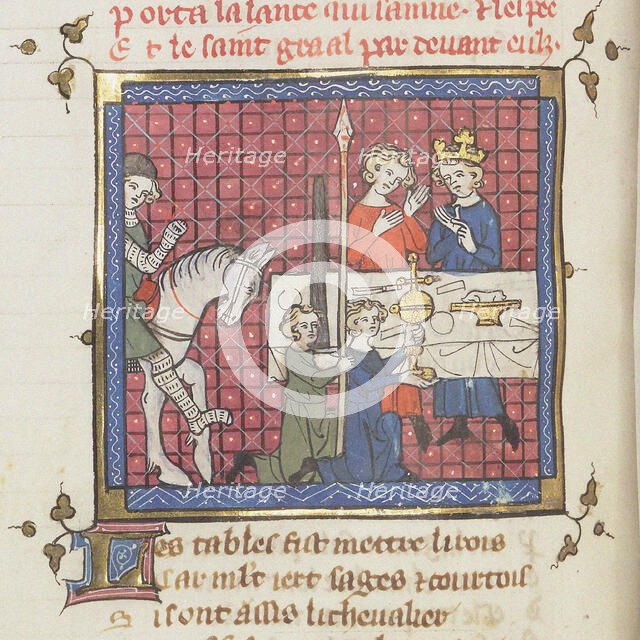 porta la lance qui saine. et lespee
Et le saint graal par devant eulz.
Heritage Heritage
Heritage Heritage Heritage
Heritage Heritage
Les tables fist mettre li rois
Car mlt iert sages et courtois
Si sont assis li chevalier